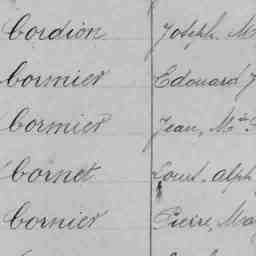 Cordion Joseph. M
Cormier Edouard J
Cormier Jean, Mie
Cornet Louis. Alph
Cornier Pierre, Ma